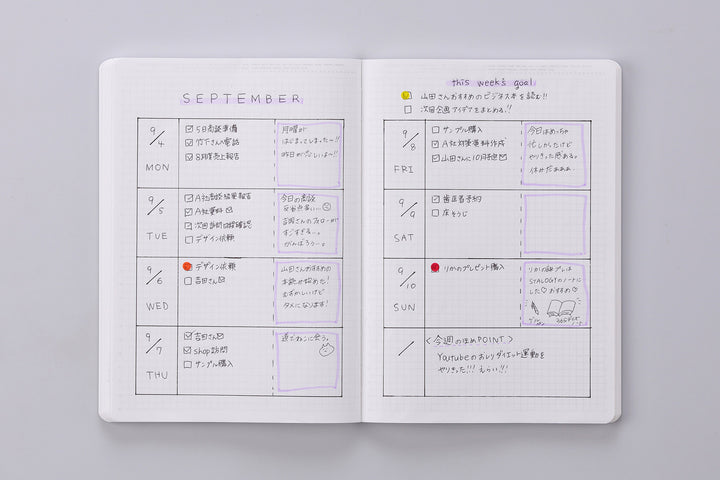 SEPTEMBER
9/4
MON
5日商談準備
竹下さんへ電話
8月度売上報告
月曜が
はじまってしまったー!!
昨日が恋しいよー!!
9/5
TUE
A社商談結果報告
A社資料
次回訪問日程確認
デザイン依頼
今日の商談
吉岡さんのフォローが
すごすぎるー。
がんばろうー。
9/6
WED
デザイン依頼
吉田さん
山田さんおすすめの
本読み始めた!
むずかしいけど
タメになります!
9/7
THU
吉田さん
shop訪問
サンプル購入
道でねこに会う。
this week's goal
山田さんおすすめのビジネス本を読む!!
次回企画アイデアをまとめる!!
9/8
FRI
サンプル購入
A社対策資料作成
山田さんに10月担当
今日はめっちゃ
忙しかったけど
やりきった感ある。
休みだぁぁぁ
9/9
SAT
歯医者予約
床そうじ
9/10
SUN
りかのプレゼント購入
りかの誕プレは
STALOGYのノートに
した♡おすすめ♡
/
<今週のほめPOINT>
Youtubeのおしりダイエット運動を
やりきった!!! えらい!!!